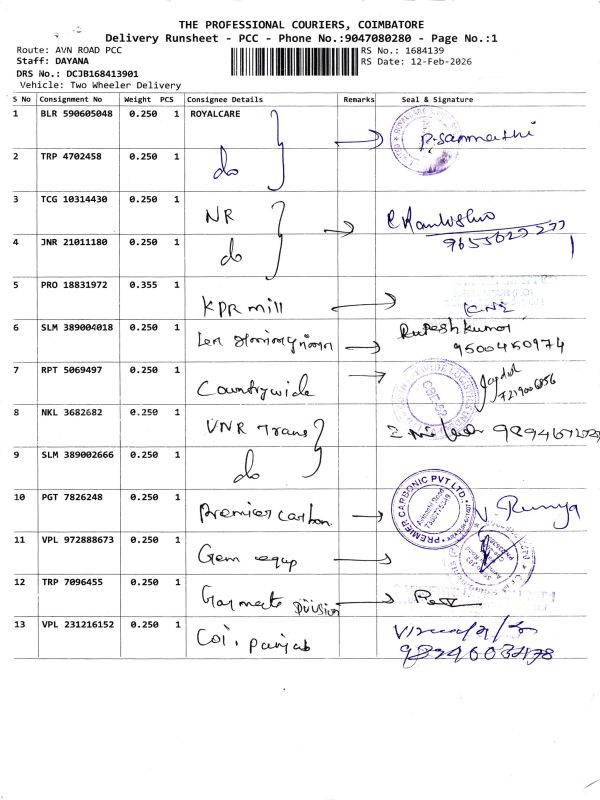 THE PROFESSIONAL COURIERS, COIMBATORE
Delivery Runsheet - PCC - Phone No.:9047080280 - Page No.:1
Route: AVN ROAD PCC
RS No.: 1684139
Staff: DAYANA
RS Date: 12-Feb-2026
DRS No.: DCJB168413901
Vehicle: Two Wheeler Delivery
S No Consignment No Weight PCS Consignee Details Remarks Seal & Signature
1 BLR 590605048 0.250 1 ROYALCARE
2 TRP 4702458 0.250 1 do
3 TCG 10314430 0.250 1 NR
4 JNR 21011180 0.250 1 do
5 PRO 18831972 0.355 1 KPR mill
6 SLM 389004018 0.250 1 Rupesh kumar
9500450974
7 RPT 5069497 0.250 1 Countrywide
8 NKL 3682682 0.250 1 VNR Trans
9 SLM 389002666 0.250 1 do
10 PGT 7826248 0.250 1 Premier carbon PREMIER CARBONIC PVT LTD.
11 VPL 972888673 0.250 1 Gem equp
12 TRP 7096455 0.250 1 Garments Division
13 VPL 231216152 0.250 1 Coi. punjab